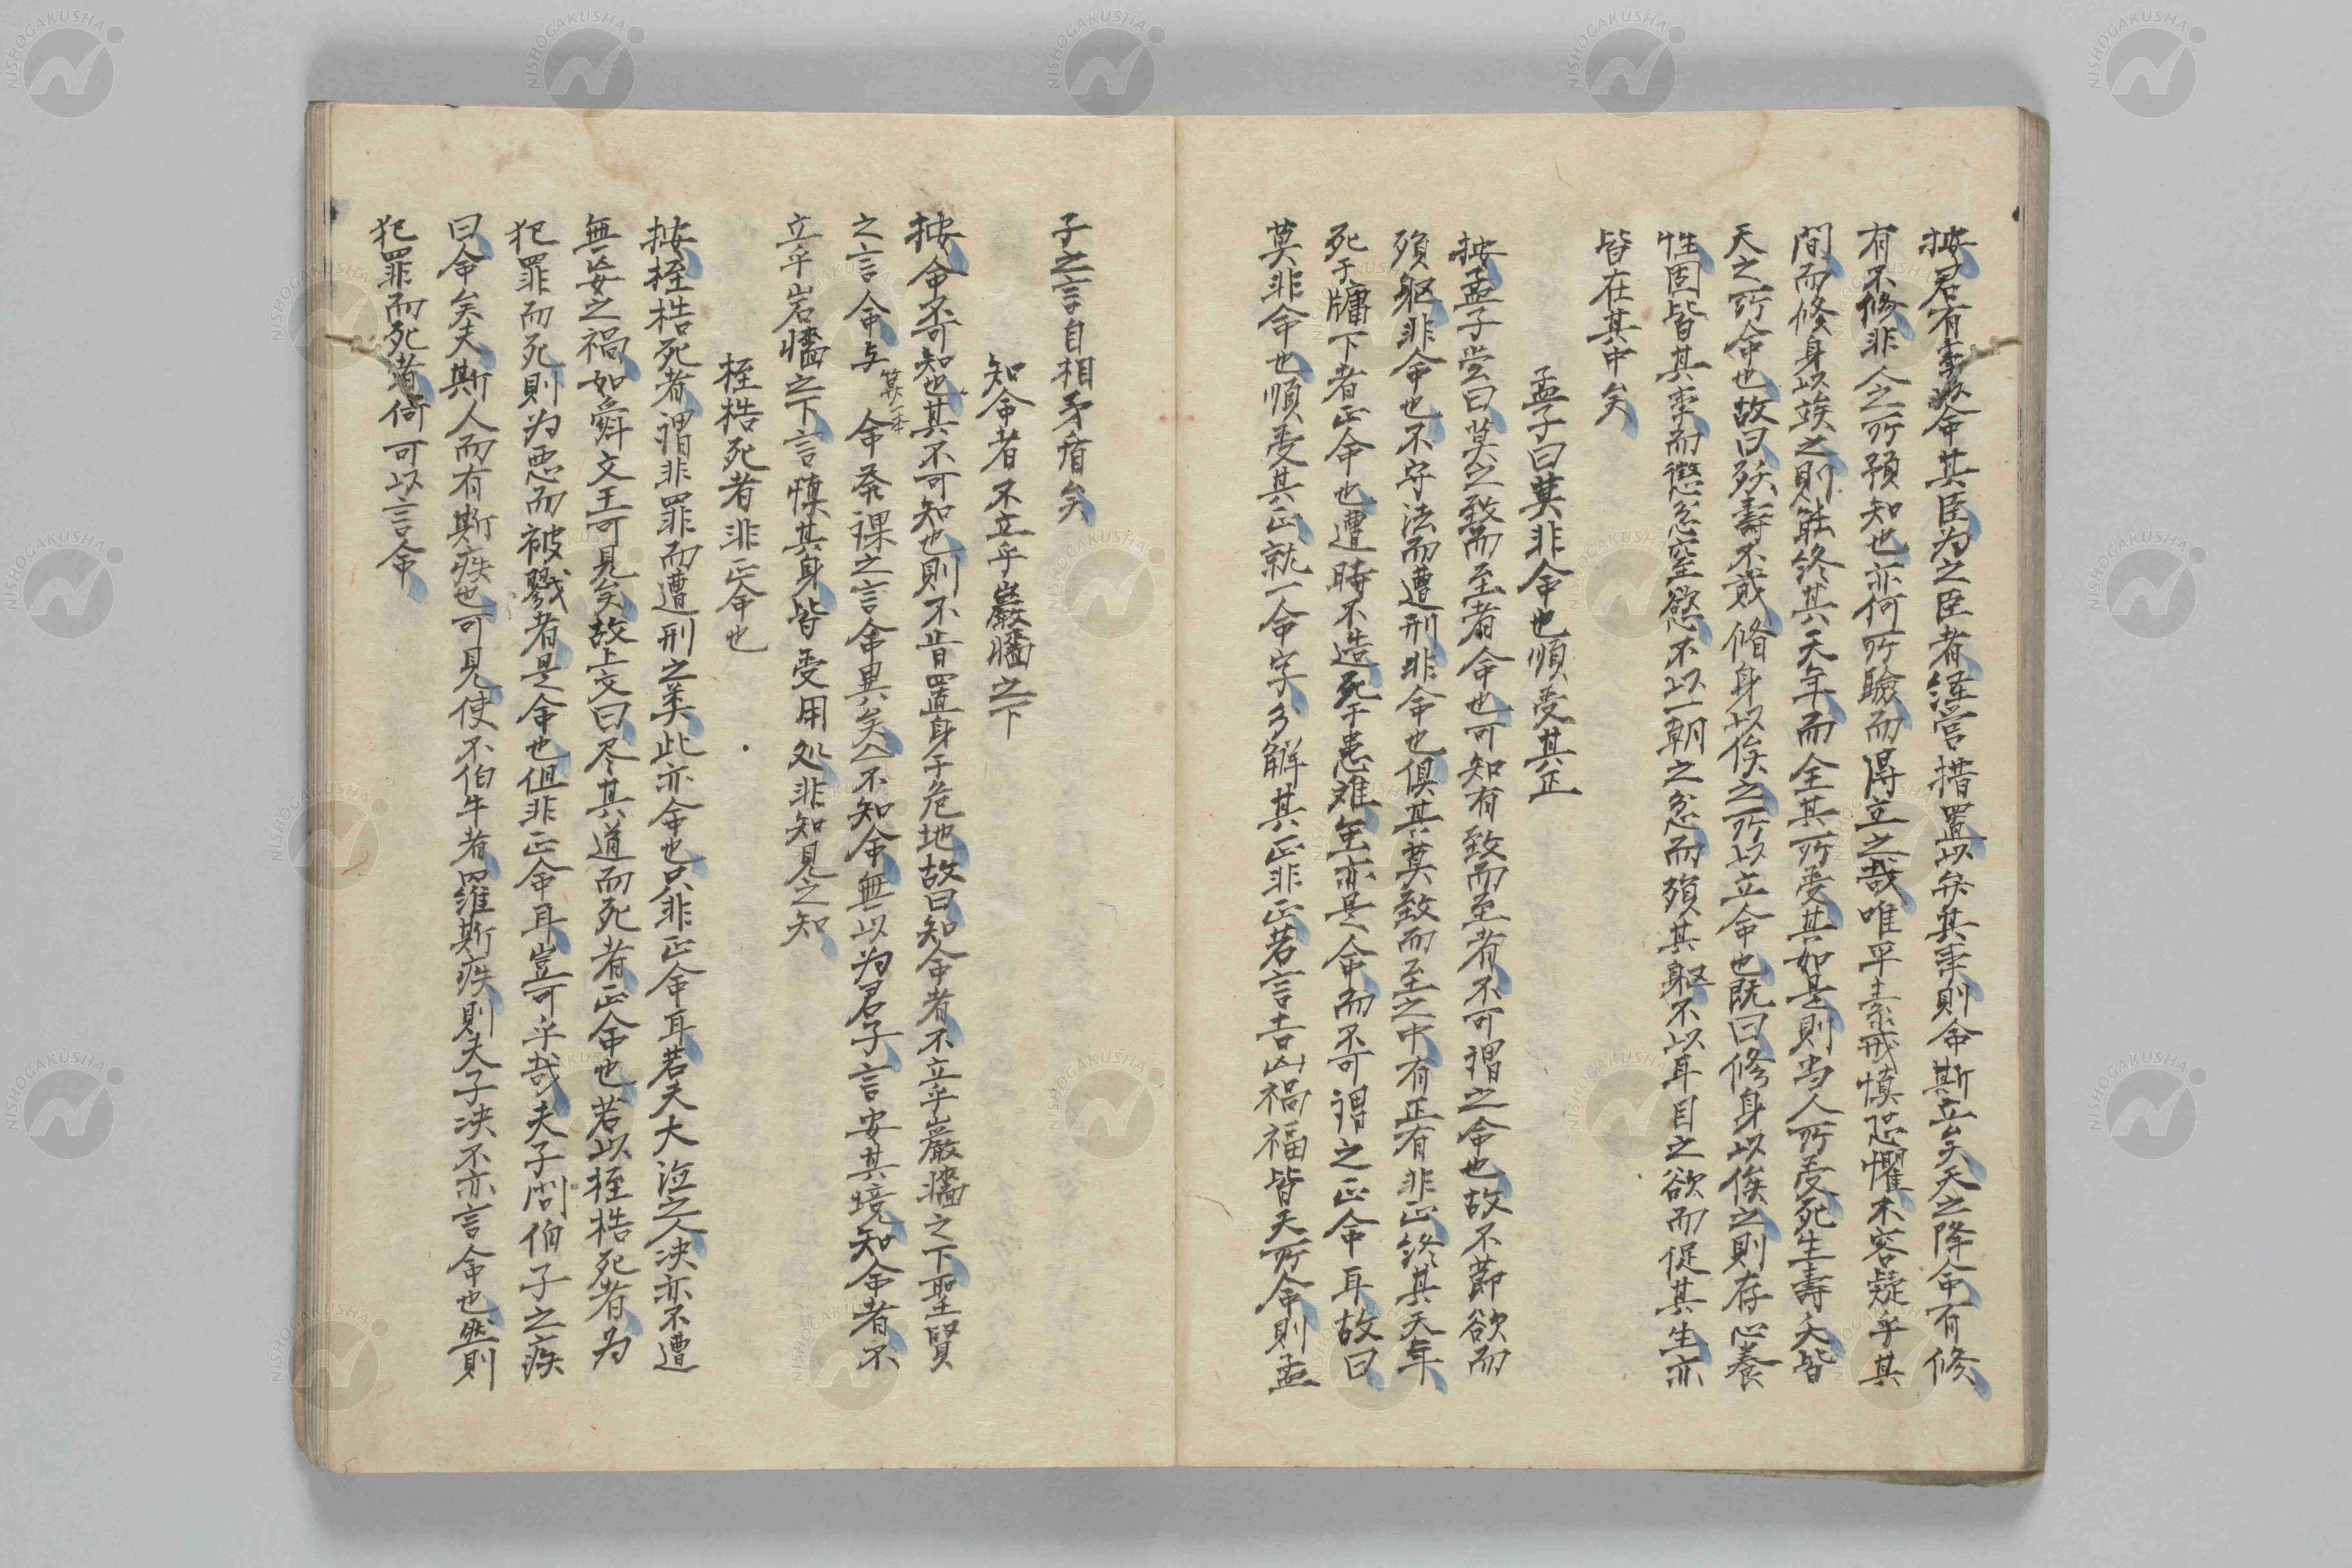 按君有事以命其臣為之臣者経営措置以弁其事則命斯立矣天之降命有修
有不修非人之所預知也亦何所驗而得立之哉唯平素戒慎恐懼不容疑乎其
間而修身以竢之則能終其天年而全其所受其如是則当人所受死生壽夭皆
天之所命也故曰殀壽不貳脩身以俟之所以立命也既曰修身以俟之則存心養
性固皆其事而懲忿窒慾不以一朝之忿而殞其軀不以耳目之欲而促其生亦
皆在其中矣
孟子曰莫非命也順受其正
按孟子嘗曰莫之致而至者命也可知有致而至者不可謂之命也故不節欲而
殞躯非命也不守法而遭刑非命也俱其莫致而至之中有正有非正終其天年
死于牖下者正命也遭時不造死于患难至亦是命而不可謂之正命耳故曰
莫非命也順受其正就一命字分解其正非正若言吉凶禍福皆天所命則孟
子之言自相矛盾矣
知命者不立乎巖牆之下
按命不可知也其不可知也則不肯置身于危地故曰知命者不立乎巖牆之下聖賢
之言命与 命夲課之言命異矣亼不知命無以為君子言安其境知命者不
算一本
立乎岩牆之下言慎其身皆受用処非知見之知
桎梏死者非正命也
按桎梏死者謂非罪而遭刑之类此亦命也只非正命耳若夫大泣之人决亦不遭
無妄之禍如舜文王可見矣故上文曰尽其道而死者正命也若以桎梏死者为
犯罪而死則为悪而被戮者是命也但非正命耳豈可乎哉夫子問伯子之疾
曰命矣夫斯人而有斯疾也可見使不伯牛者罹斯疾則夫子决不亦言命也然則
犯罪而死者何可以言命